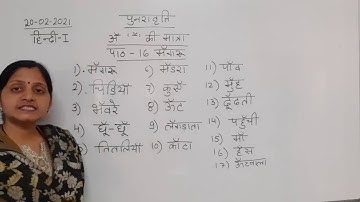 20-02-2021
हिन्दी-I
पुनरावृत्ति
अँ (ँ) की मात्रा
पाठ - 16 मँगरू
1) मँगरू
2) चिड़ियाँ
3) भँवरे
4) घूँ-घूँ
5) तितलियाँ
6) मँडरा
7) कुएँ
8) ऊँट
9) लँगड़ाता
10) काँटा
11) पाँव
12) मुँह
13) ढूँढती
14) पहुँची
15) माँ
16) हँस
17) ऊँटवाला